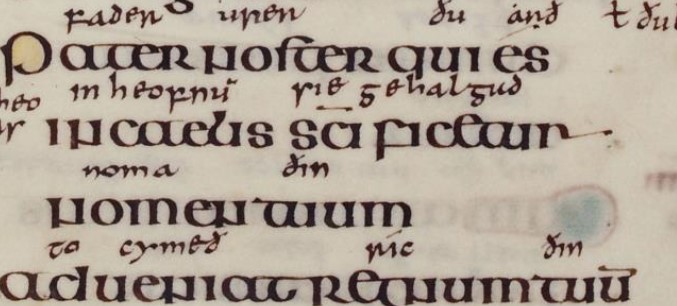 fader urer ðu arð ł ðu
Pater noster qui es
in heofnū sie gehalgud
in caelis s̄cificetur
noma ðin
nomen tuum
to cymeð ric ðin
adueniat regnum tuū